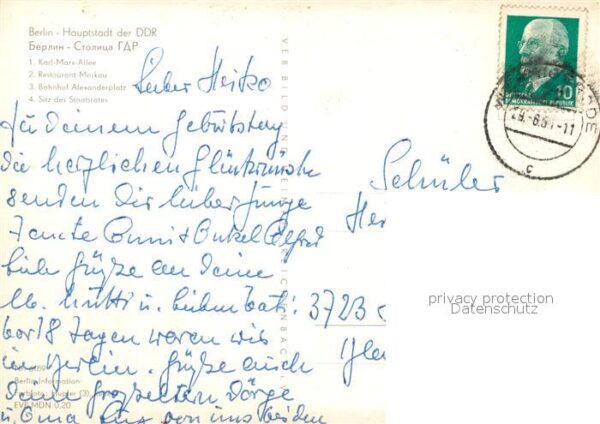 Berlin - Hauptstadt der DDR
Берлин - Столица ГДР
1. Karl-Marx-Allee
2. Restaurant Moskau
3. Bahnhof Alexanderplatz
4. Sitz des Staatsrates
Lieber Heiko
Zu deinem Geburtstag
die herzlichen Glückwünsche
senden Dir lieber Junge
Tante Anni + Onkel Alfred
Viele Grüße an Deine
lb. Mutti u. lieben Vati:
vor 8 Tagen waren wir
in Berlin. Grüße auch
deine Großeltern
u. Oma von uns beiden
Berlin-Information
EVP MDN 0,20
Schüler
3723
10
DEUTSCHE
DEMOKRATISCHE REPUBLIK
c
privacy protection
Datenschutz